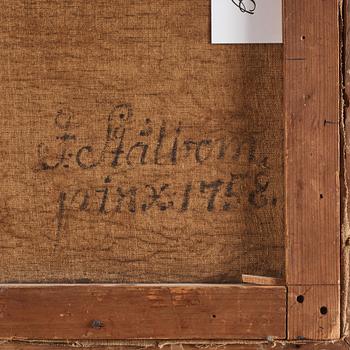 J. Stålbom,
pinx. 1758.